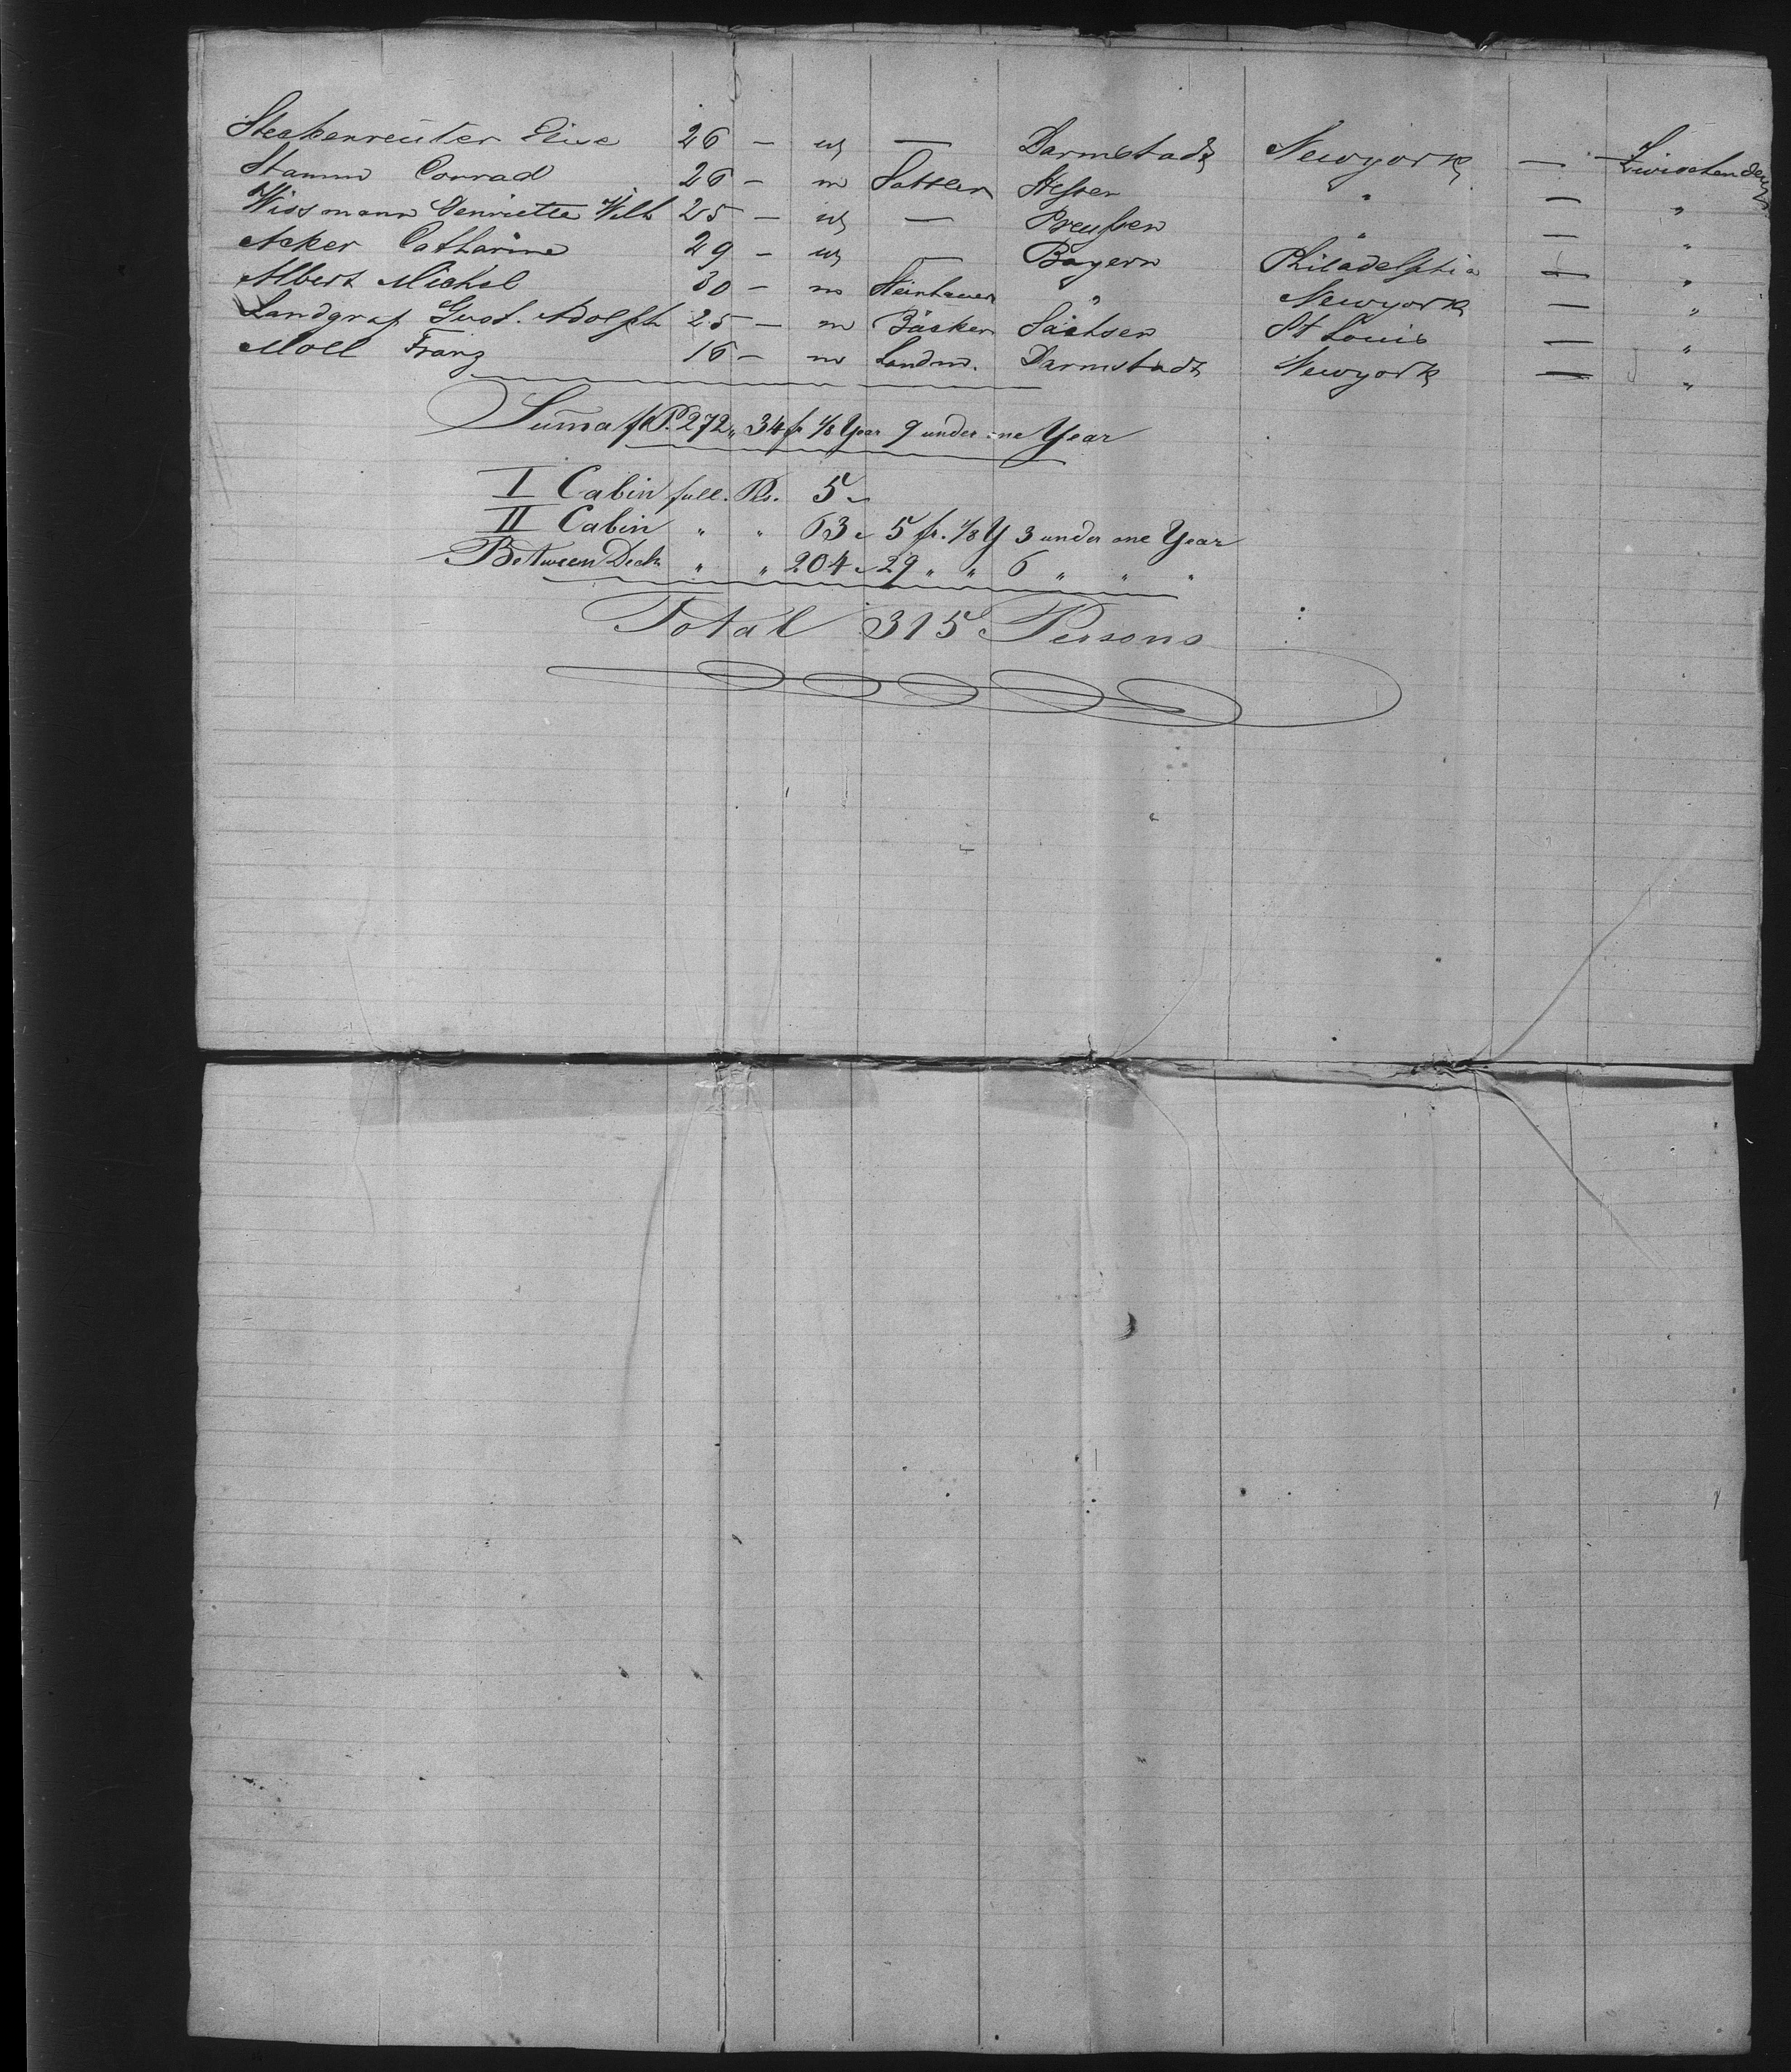 Steckenreuter Elise 26 — w — Darmstadt Newyork — Zwischendeck
Stamm Conrad 26 — m Sattler Hessen " — "
Wissmann Henriette Wilh 25 — w — Preußen " — "
Acker Catharine 29 — w — Bayern Philadelphia — "
Albert Michel 30 — m Steinhauer " Newyork — "
Landgraf Gust. Adolph 25 — m Bäcker Sachsen St Louis — "
Moll Franz 16 — m Landm. Darmstadt Newyork — "
Sum̄a f P. 272 " 34 fr 1/8 Year 9 under one Year
I Cabin full. Ps. 5 "
II Cabin " " 63 " 5 fr. 1/8 Y 3 under one Year
Between Deck " " 204 " 29 " " 6 " " "
Total 315 Persons